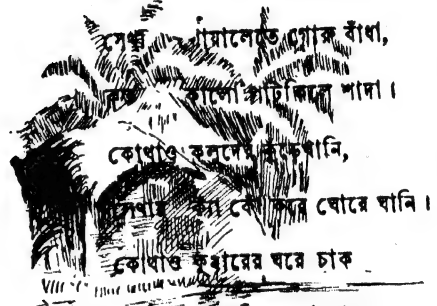 গোয়ালেতে গোরু বাঁধা,
কালো পাটকিলে শাদা।
কোথাও কলুদের কুঁড়েখানি,
ক্যাঁ কোঁ করে ঘোরে ঘানি।
কোথাও কুমারের ঘরে চাক